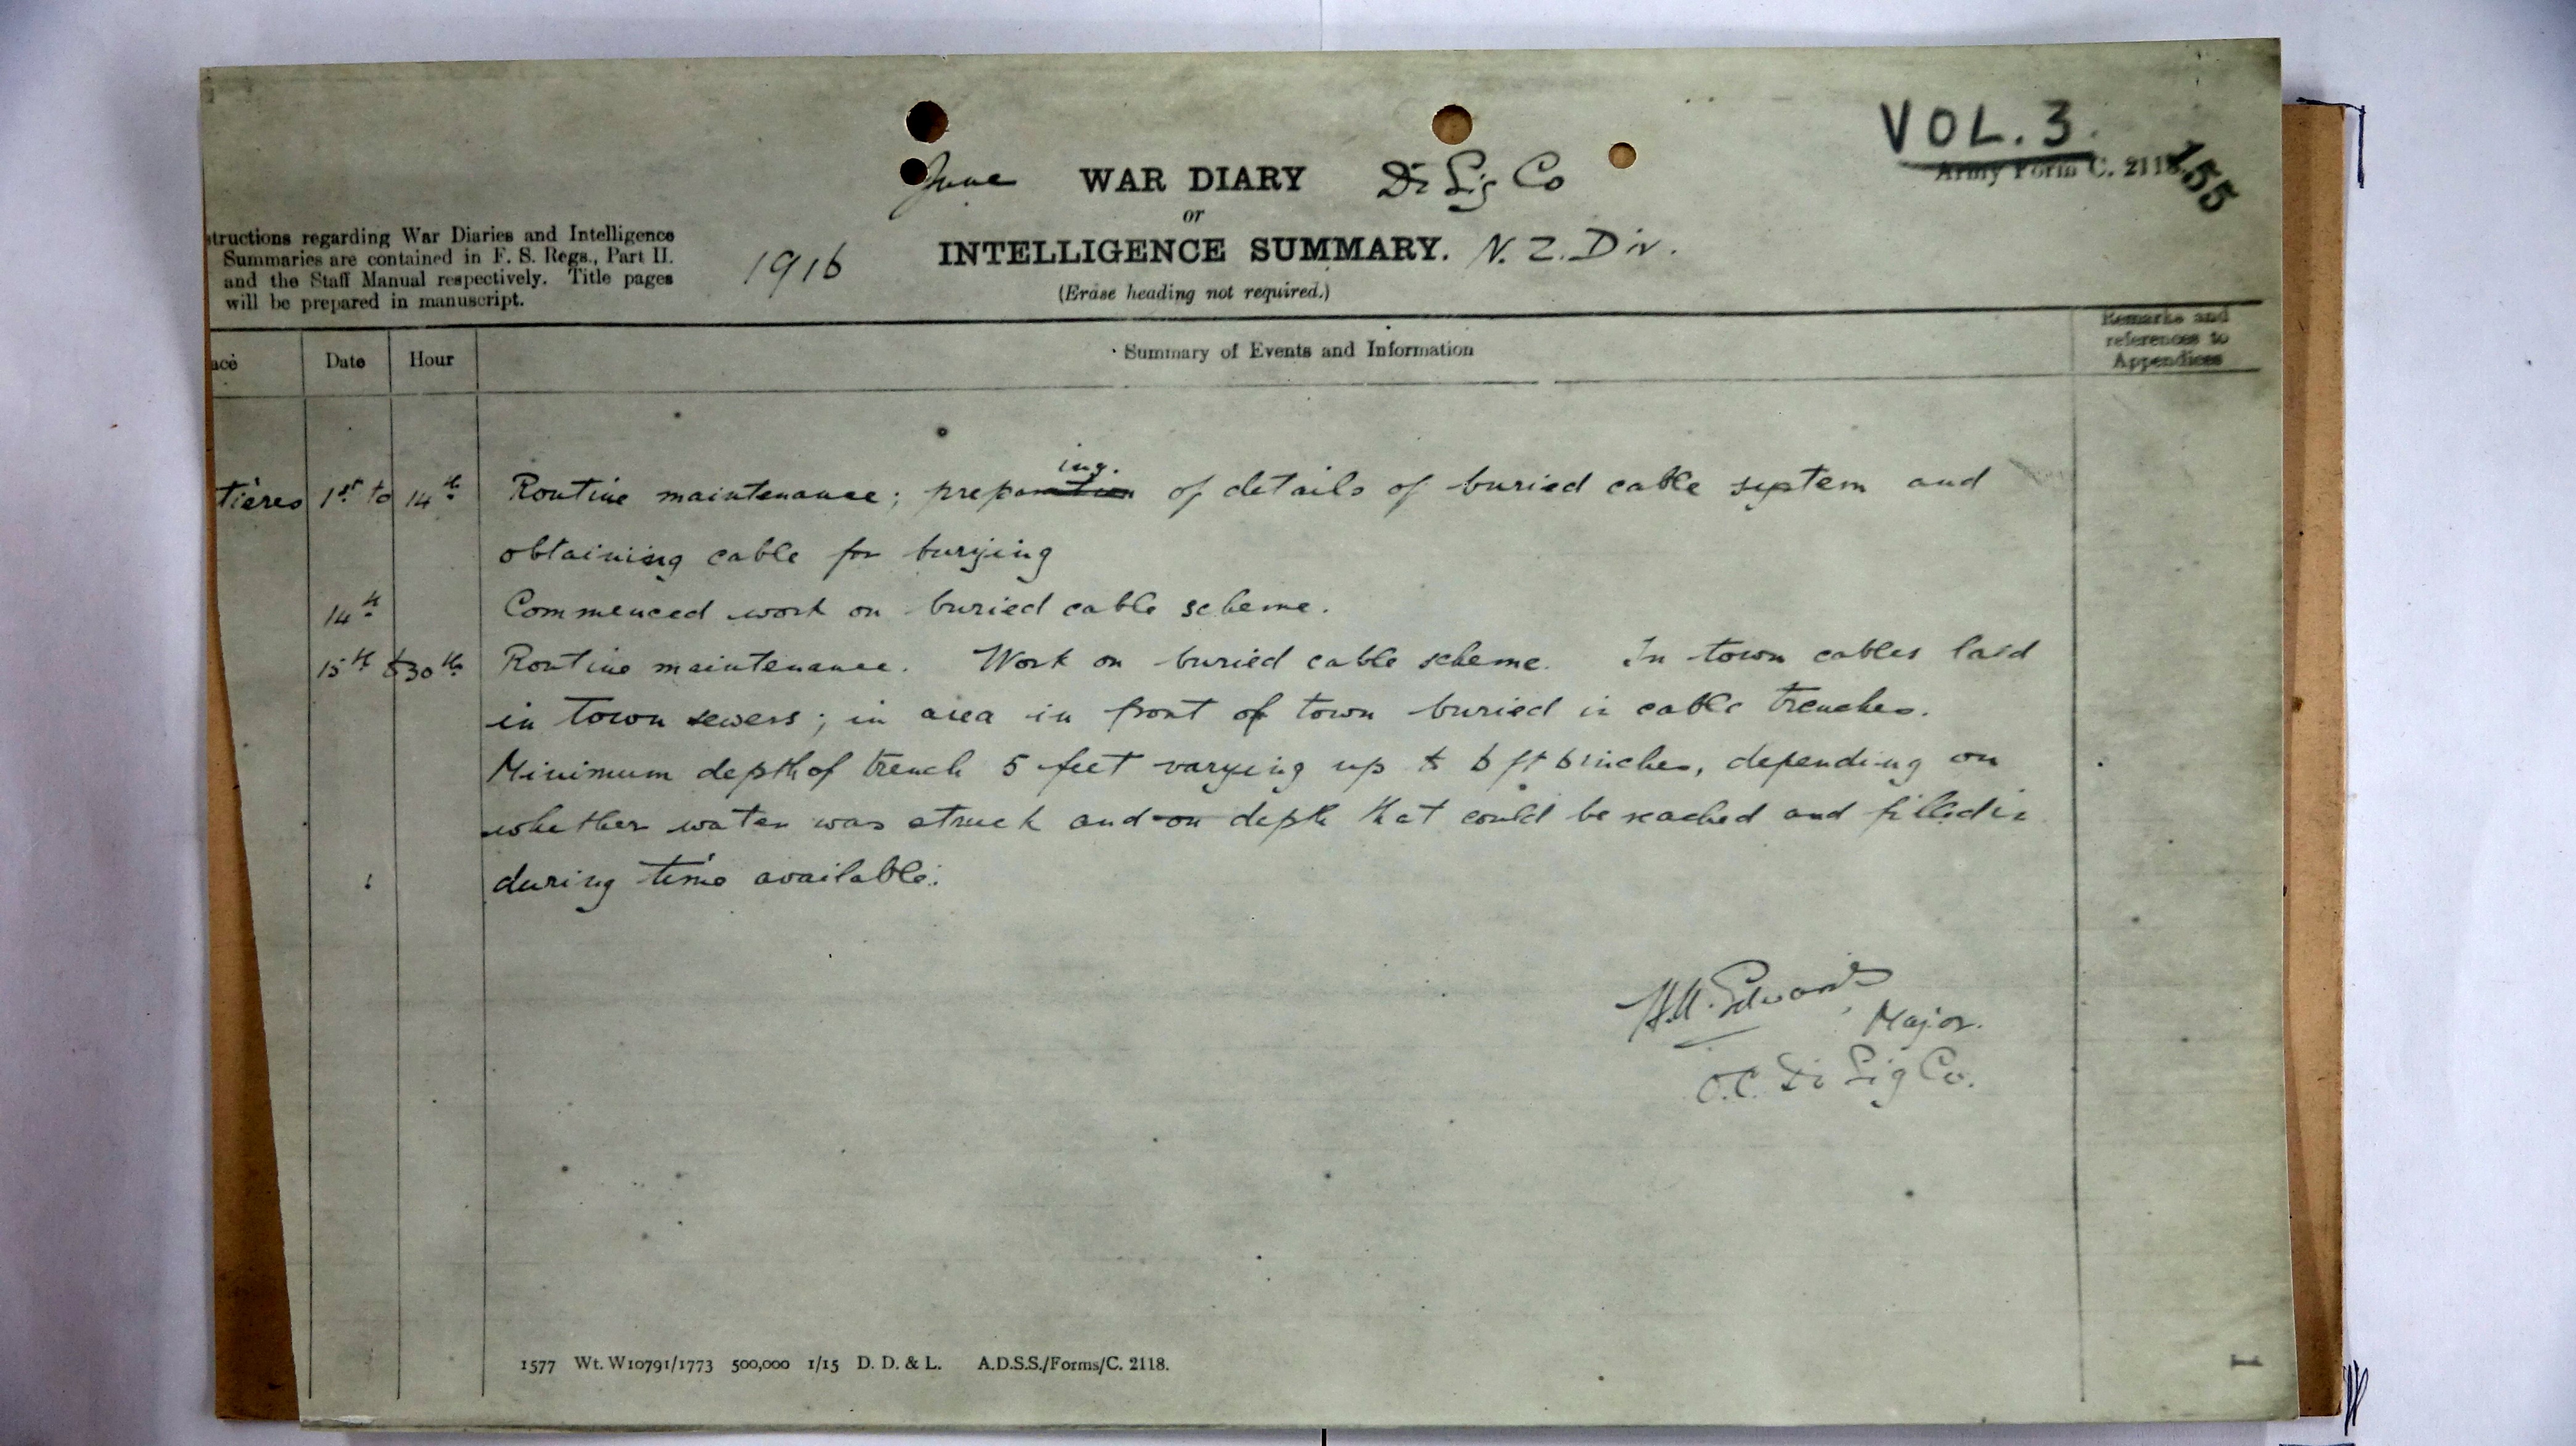 VOL. 3.
Army Form C. 2118.
155
June WAR DIARY Di Sig Co
or
INTELLIGENCE SUMMARY. N. Z. Div.
(Erase heading not required.)
1916
structions regarding War Diaries and Intelligence
Summaries are contained in F. S. Regs., Part II.
and the Staff Manual respectively. Title pages
will be prepared in manuscript.
ace Date Hour Summary of Events and Information
Remarks and
references to
Appendices
tières 1st to 14th Routine maintenance; preparation ing. of details of buried cable system and
obtaining cable for burying
14th Commenced work on buried cable scheme.
15th to 30th Routine maintenance. Work on buried cable scheme. In town cables laid
in town sewers; in area in front of town buried in cable trenches.
Minimum depth of trench 5 feet varying up to 6 ft 6 inches, depending on
whether water was struck and on depth that could be reached and filled in
during time available.
Edwards, Major.
O.C. Di Sig Co.
1577 Wt. W10791/1773 500,000 1/15 D. D. & L. A.D.S.S./Forms/C. 2118.